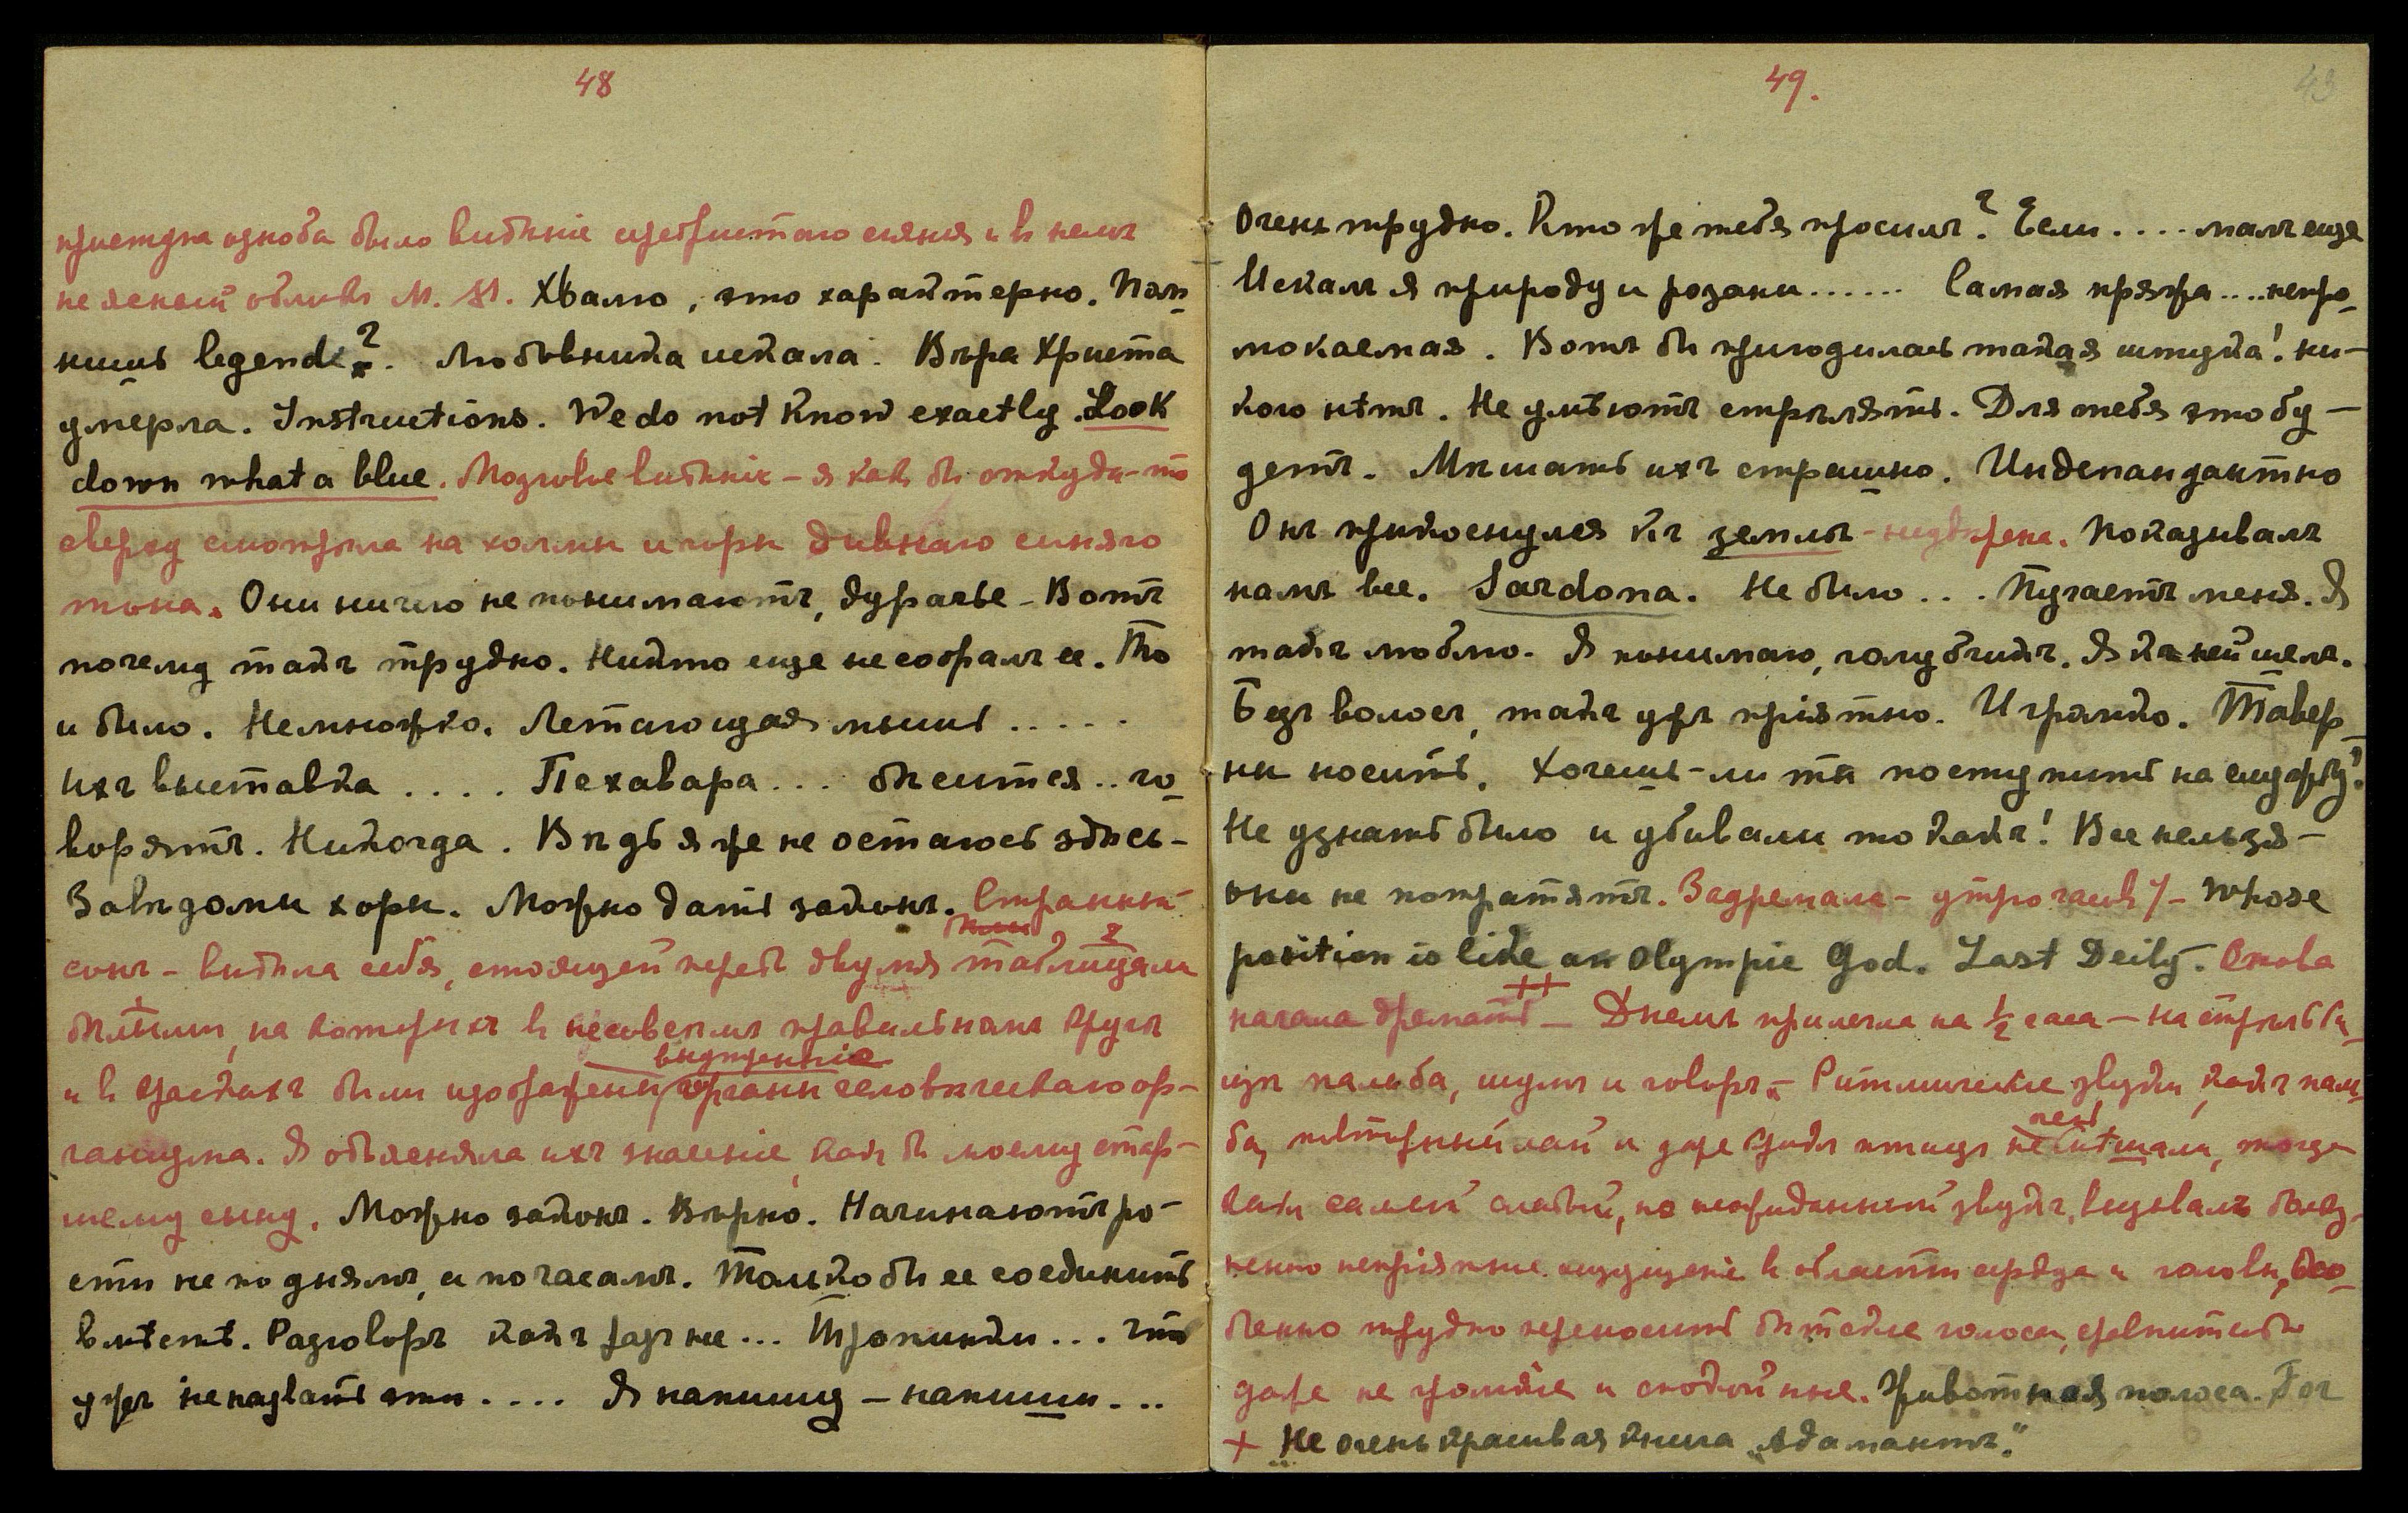 48
приступа озноба было видѣніе серебристаго сіянія и въ немъ
не ясный обликъ М. М. Хвалю, это характерно. Пом-
нишь legend? Любовника искала. Вѣра Христа
умерла. Instructions. We do not know exactly. Look
down what a blue. Мозговое видѣніе – я какъ бы откуда-то
сверху смотрѣла на холмы и горы дивнаго синяго
тона. Они ничего не понимаютъ, дурачье – Вотъ
почему такъ трудно. Никто еще не собралъ ее. То
и было. Немножко. Летающая мышь .....
Ихъ выставка .... Пехавара ... бѣсится .. го-
ворятъ. Никогда. Вѣдь я же не остаюсь здѣсь –
Завѣдомы хоры. Можно дать законъ. Странный
сонъ – видѣла себя, стоящей передъ двумя таблицами
бѣлыми, на которыхъ въ не совсѣмъ правильномъ кругѣ
и въ краскахъ были изображены внутренніе органы человѣческаго ор-
ганизма. Я объясняла ихъ значеніе, какъ бы моему стар-
шему сыну. Можно законъ. Вѣрно. Начинаютъ ро-
сти не по днямъ, а по часамъ. Только бы ее соединить
вмѣстѣ. Разговоръ какъ разъ не ... Тропинки ... что
ужъ не назвать эти .... Я напишу – напиши ...
49.
43
Очень трудно. Кто же тебя просилъ? Если .... малъ еще
Искалъ я природу и розаны ...... Самая пряжа .... непро-
мокаемая. Вотъ бы пригодилась такая штука! ни-
кого нѣтъ. Не умѣютъ стрѣлять. Для тебя это бу-
детъ. Мѣшать ихъ страшно. Индепандантно
Онъ прикоснулся къ землѣ – Показывалъ
намъ все. Sardona. Не было ... Пугаетъ меня. Я
такъ люблю. Я понимаю, голубчикъ. Я къ ней шелъ.
Безъ волосъ, такъ ужъ пріятно. Играмко. Тавер-
ны носить. Хочешь-ли ты поступить на службу?
Не узнать было и убивали то какъ! Все нельзя –
они не потратятъ. Задремала – утро часовъ 7 – Whose
position is like an Olympic God. Last Deity. Снова
начала дремать ++ – Днемъ прилегла на ½ часа – на стрѣльби-
щѣ пальба, шумъ и говоръ. – Ритмическіе звуки, какъ паль-
ба, повторный лай и даже крикъ птицъ не мѣшали, тогда
какъ самый слабый, но неожиданный звукъ, вызывалъ болѣз-
ненно непріятное ощущеніе въ области сердца и головы, осо-
бенно трудно переносить людскіе голоса, сравнительно
даже не громкіе и спокойные. Животная полоса. For
+ „Не очень красивая книга „Адамантъ".